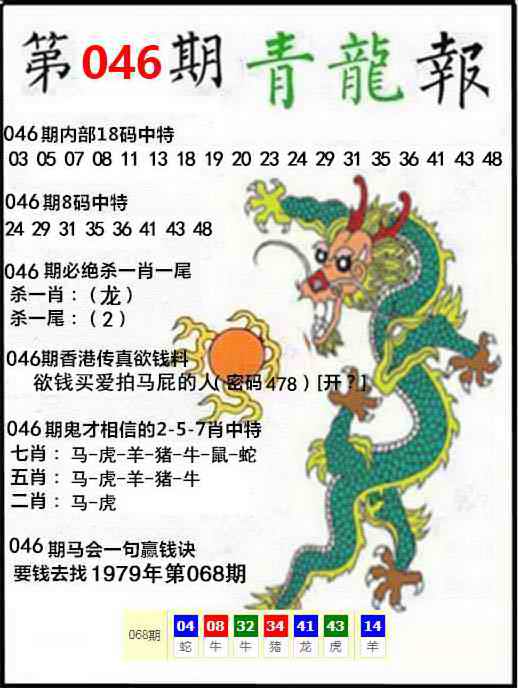 第046期青龍報
046期内部18码中特
03 05 07 08 11 13 18 19 20 23 24 29 31 35 36 41 43 48
046期8码中特
24 29 31 35 36 41 43 48
046期必绝杀一肖一尾
杀一肖：（龙）
杀一尾：（2）
046期香港传真欲钱料
欲钱买爱拍马屁的人(密码478)[开？]
046期鬼才相信的2-5-7肖中特
七肖：马-虎-羊-猪-牛-鼠-蛇
五肖：马-虎-羊-猪-牛
二肖：马-虎
046期马会一句赢钱诀
要钱去找1979年第068期
068期 04 08 32 34 41 43 14
蛇 牛 牛 猪 龙 虎 羊